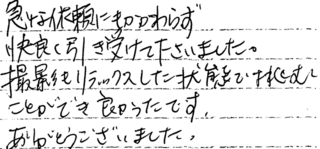 急な依頼にもかかわらず
快良く引き受けて下さいました。
撮影もリラックスした状態で臨む
ことができ良かったです。
ありがとうございました。